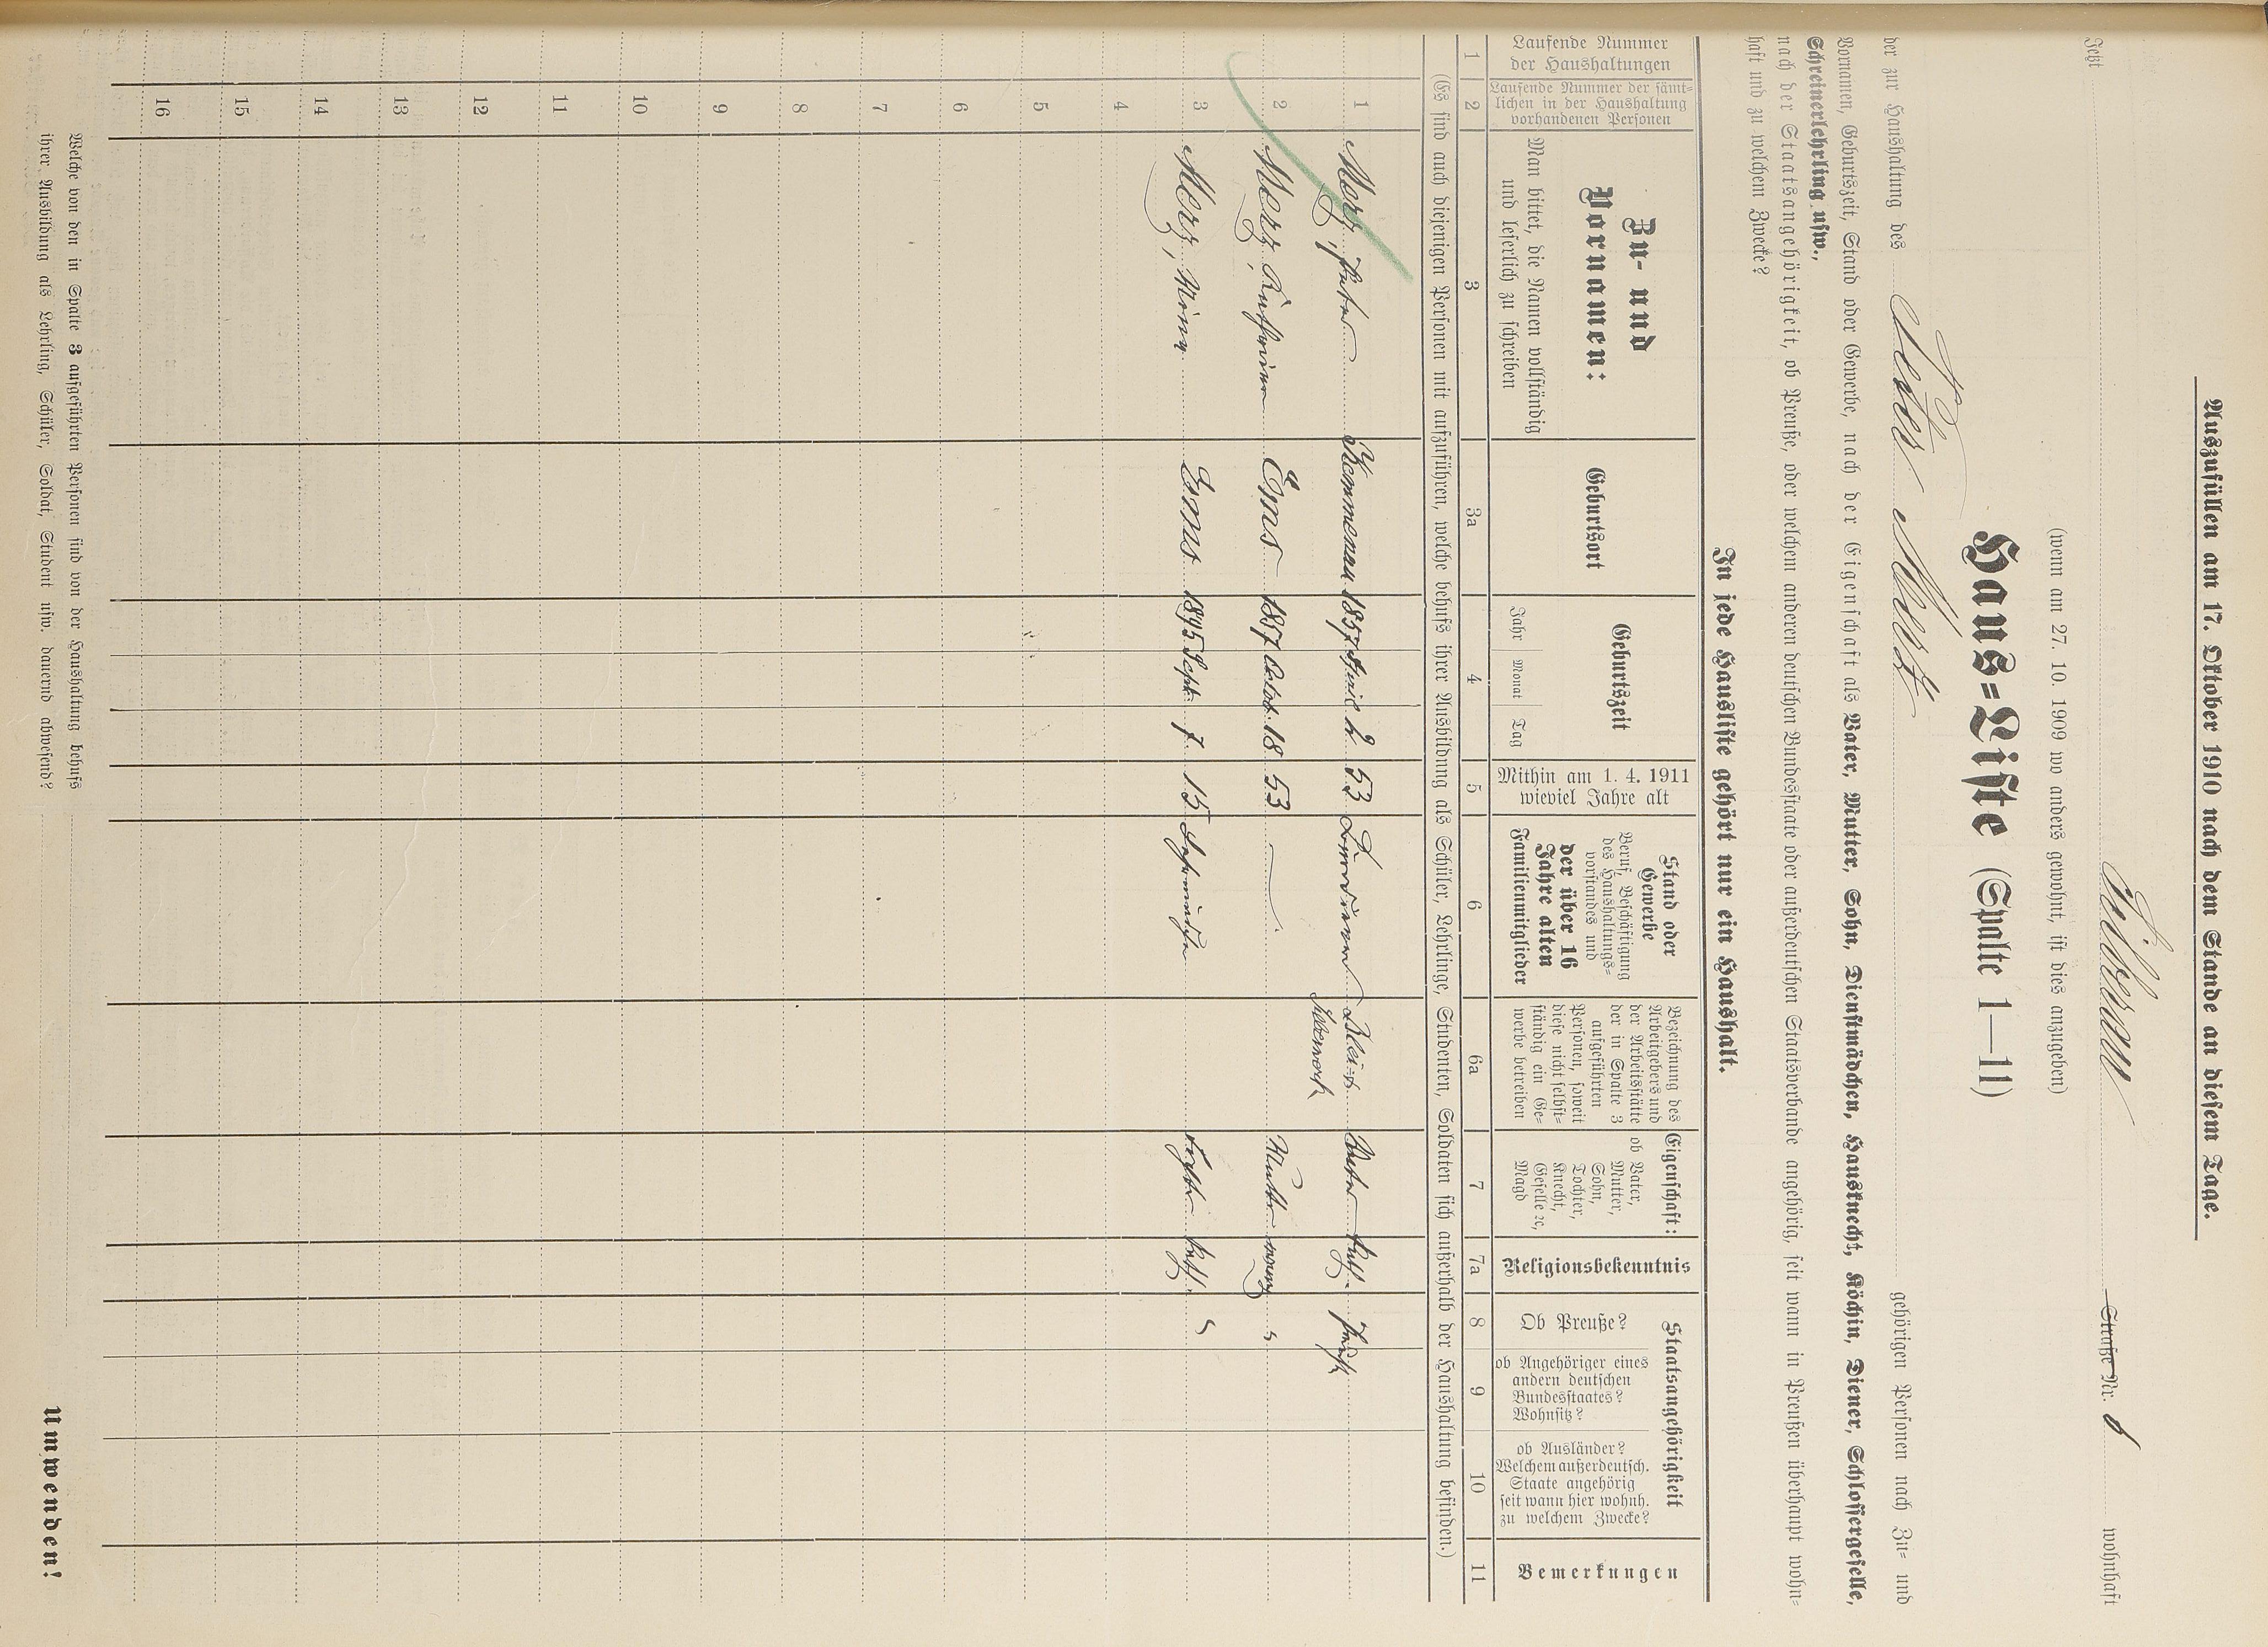 Auszufüllen am 17. Oktober 1910 nach dem Stande an diesem Tage.
Jetzt Silberau Straße Nr. 8 wohnhaft
(wenn am 27. 10. 1909 wo anders gewohnt, ist dies anzugeben)
Haus=Liste (Spalte 1—11)
der zur Haushaltung des Peter Merz gehörigen Personen nach Zu= und
Vornamen, Geburtszeit, Stand oder Gewerbe, nach der Eigenschaft als Vater, Mutter, Sohn, Dienstmädchen, Hausknecht, Köchin, Diener, Schlossergeselle,
Schreinerlehrling usw.,
nach der Staatsangehörigkeit, ob Preuße, oder welchem anderen deutschen Bundesstaate oder außerdeutschen Staatsverbande angehörig, seit wann in Preußen überhaupt wohn=
haft und zu welchem Zwecke?
In jede Hausliste gehört nur ein Haushalt.
Laufende Nummer
der Haushaltungen
Laufende Nummer der sämt=
lichen in der Haushaltung
vorhandenen Personen
Zu- und
Vornamen:
Man bittet, die Namen vollständig
und leserlich zu schreiben
Geburtsort
Geburtszeit
Jahr Monat Tag
Mithin am 1. 4. 1911
wieviel Jahre alt
Stand oder
Gewerbe
Beruf, Beschäftigung
des Haushaltungs=
vorstandes und
der über 16
Jahre alten
Familienmitglieder
Bezeichnung des
Arbeitgebers und
der Arbeitsstätte
der in Spalte 3
aufgeführten
Personen, soweit
diese nicht selbst=
ständig ein Ge=
werbe betreiben
Eigenschaft:
ob Vater,
Mutter,
Sohn,
Tochter,
Knecht,
Geselle ꝛc,
Magd
Religionsbekenntnis
Staatsangehörigkeit
Ob Preuße?
ob Angehöriger eines
andern deutschen
Bundesstaates?
Wohnsitz?
ob Ausländer?
Welchem außerdeutsch.
Staate angehörig
seit wann hier wohnh.
zu welchem Zwecke?
Bemerkungen
1 2 3 3a 4 5 6 6a 7 7a 8 9 10 11
(Es sind auch diejenigen Personen mit aufzuführen, welche behufs ihrer Ausbildung als Schüler, Lehrlinge, Studenten, Soldaten sich außerhalb der Haushaltung befinden.)
1 Merz, Peter Kemmenau 1857 2 53 Vater kath. Preuße
2 Merz, Katharina Ems 1857 Octob. 18 53 Mutter evang "
3 Merz, Ems 1895 Sept. 7 15 Tochter kath. "
4
5
6
7
8
9
10
11
12
13
14
15
16
Welche von den in Spalte 3 aufgeführten Personen sind von der Haushaltung behufs
ihrer Ausbildung als Lehrling, Schüler, Soldat, Student usw. dauernd abwesend?
Umwenden!